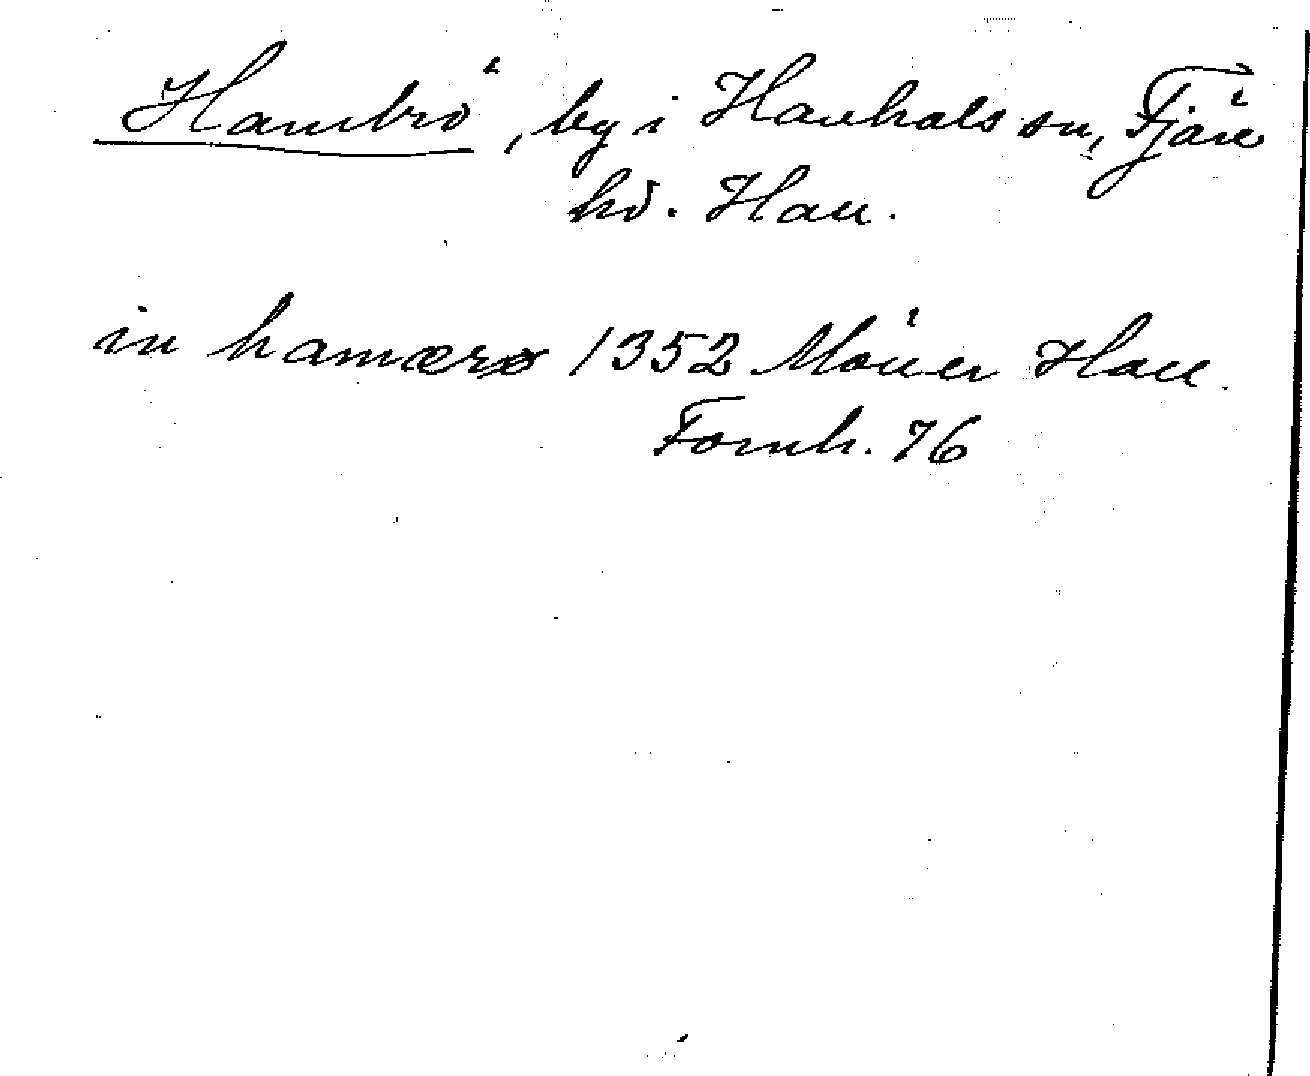 Hambrö, by i Hanhals sn, Fjäre
hd. Hall.
in hamærø 1352 Möller Hall.
Fornh. 76